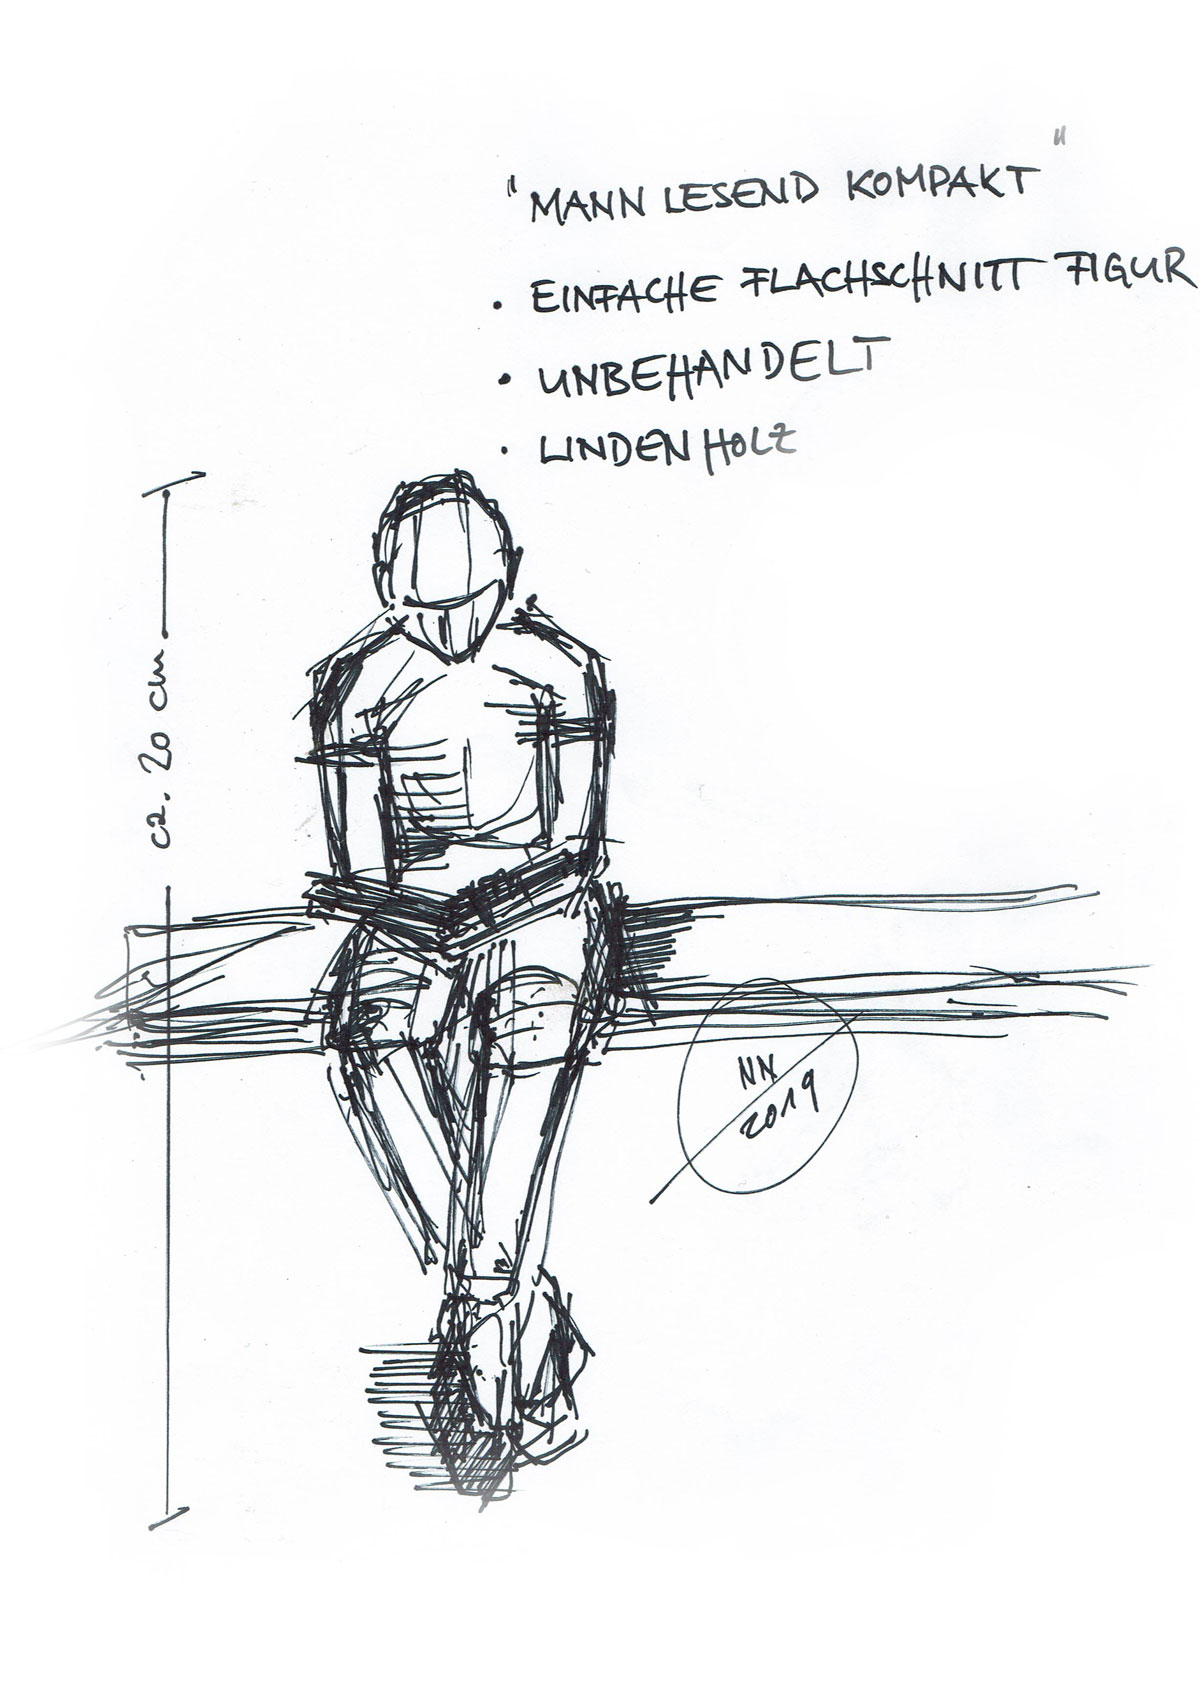 "MANN LESEND KOMPAKT"
• EINFACHE FLACHSCHNITT FIGUR
• UNBEHANDELT
• LINDENHOLZ
ca. 20 cm
NN
2019